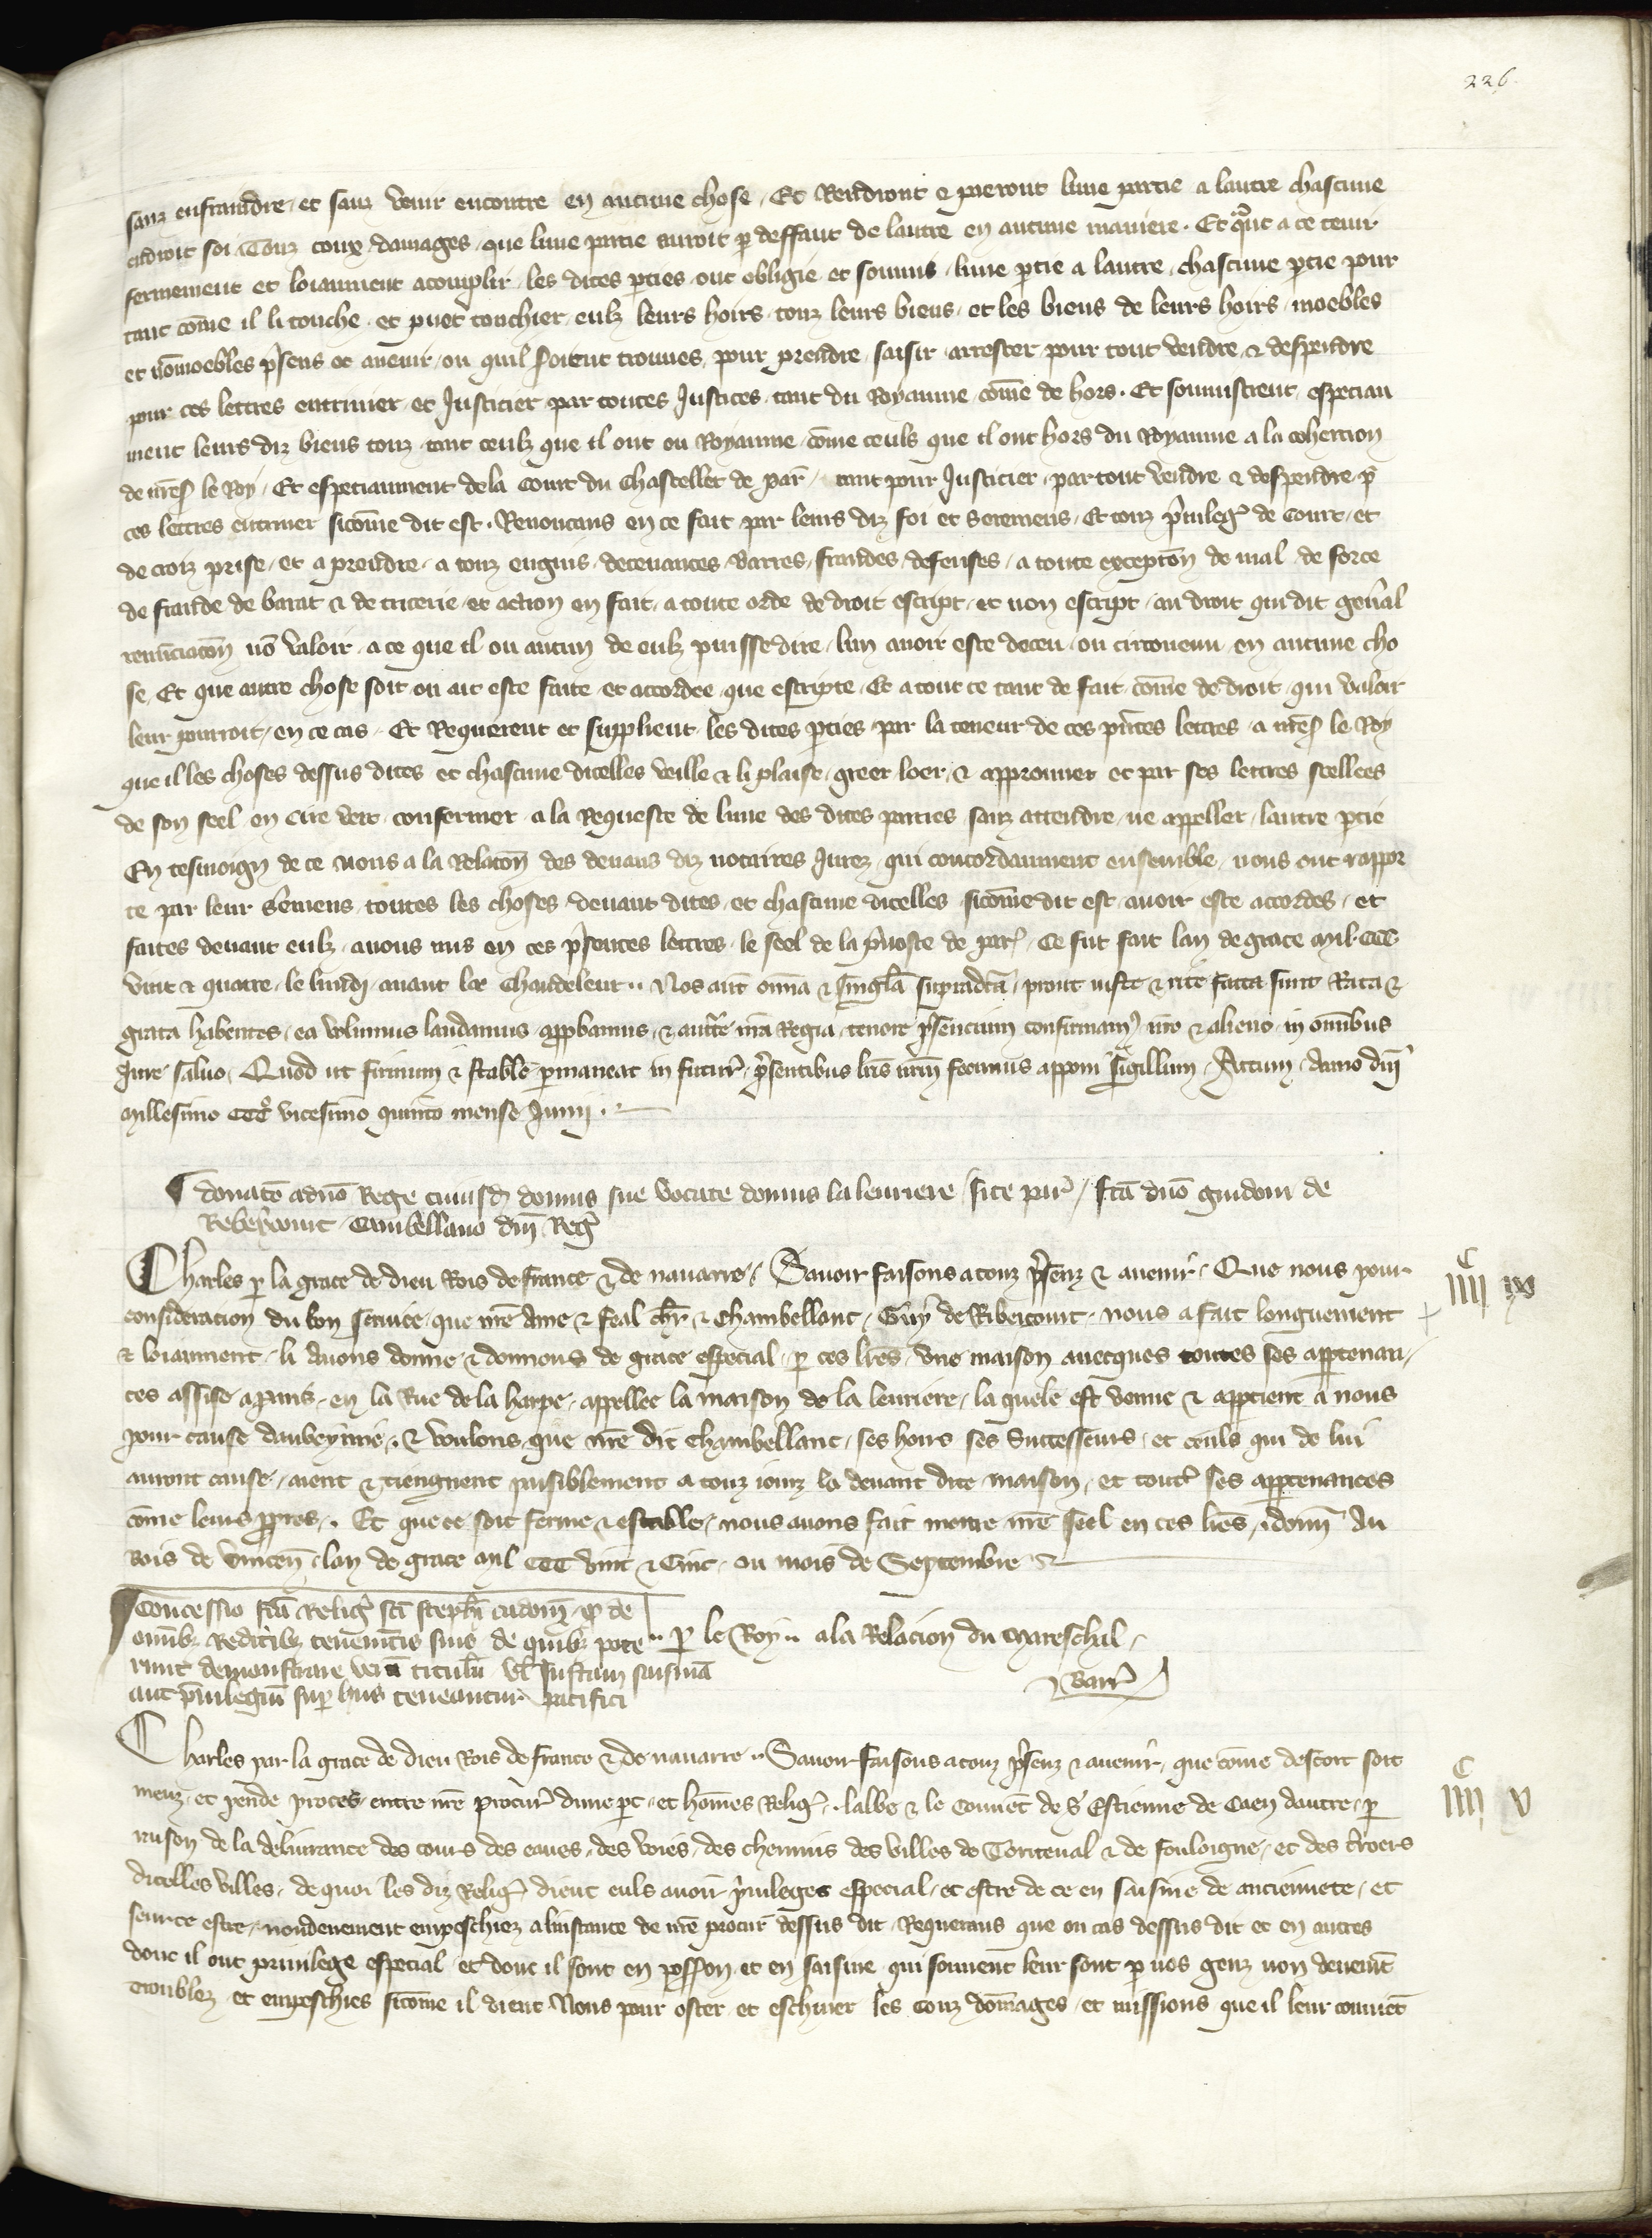 226.
sanz enfraindre et sanz venir encontre en aucune chose, Et Rendront & paieront lune partie a lautre chascune
endroit soi Touz coux damages que lune partie auroit p deffaut de lautre en aucune maniere. Et quant a ce tenir
fermement et loiaument acomplir les dites pties ont obligie et soumis lune ptie a lautre chascune ptie pour
tant cõme il li touche et puet touchier eulz leurs hoirs touz leurs biens et les biens de leurs hoirs moebles
et nõmoebles psens et auenir ou quil soient trouues pour prendre saisir arrester pour tout vendre & despendre
pour ces lettres enteriner et Justicier par toutes Justices tant du Royaume cõme de hors. Et soumistrent especiau
ment leurs diz biens touz tant ceulz que il ont ou Royaume cõme ceuls que il ont hors du Royaume a la cohercion
de nreS le Roy, Et especiaument de la Court du Chastellet de par̃ tant pour Justicier par tout vendre & despendre p
ces lettres enteriner sicõme dit est. Renoncans en ce fait par leurs diz foi et seremens, Et touz priuileg de Court et
de croiz prise et a prendre a touz enguis deceuances barres fraudes defenses a toute excepton de mal de force
de fraude de barat & de tricerie et action en fait a toute orde de droit escript et non escript au droit qui dit gen̄al
renūciacon nõ valoir a ce que il ou aucun de eulz puisse dire lun auoir este deceu ou circonuenu en aucune cho
se, Et que autre chose soit ou ait este faite et accordee que escripte, Et a tout ce tant de fait cõme de droit qui valoir
leur pourroit en ce cas. Et Requierent et supplient les dites pties par la teneur de ces pñtes lettres a nreS le Roy
que il les choses dessus dites et chascune dicelles veille & li plaise greer loer & approuuer et par ses lettres scellees
de son seel en cire vert confermer a la Requeste de lune des dites parties sanz attendre ne appeller lautre ptie
En tesmoign de ce nous a la Relacon des deuans diz notaires Jurez qui concordaument ensemble nous ont rappor
te par leur sermens toutes les choses deuant dites et chascune dicelles sicõme dit est auoir este accordes et
faites deuant eulz auons mis en ces psentes lettres le seel de la pruoste de par̃, Ce fut fait lan de grace mil CCC
vint & quatre le lundi auant la Chandeleur.. Nos aut̄ om̄ia & singl̃a supradc̃a prout iuste & rite facta sunt Rata &
grata habentes ea volumus laudamus approbamus & auctte nrã Regia tenore psencium confirmam9 nro & alieno in omibus
Jure saluo. Quod ut firmum & stabile pmaneat in futur̃ psentibus lris nrm̃ fecimus apponi sigillum. Actum Anno dni
millesimo CCCo vicesimo quinto mense Junij.
¶ donatõ a dnõ Rege cuiusd domus sue vocate domus la leuriere site par̃ / fcã dnõ guidoni de
Rebercourt Cambellano dni Reg̃
Charles p la grace de dieu Rois de france & de nauarre. Sauoir faisons a touz psenz & auenir. Que nous pour
consideration du bon seruice que nre Ame & feal chr̃ & Chambellanc Guy de Ribercourt nous a fait longuement
& loiaument li Auons donne & donnons de grace especial p ces lres vne maison auecques toutes ses apptenan
ces assise a paris en la Rue de la harpe appellee la maison de la leuriere la quele est venue & apptient a nous
pour cause daubeyinne. & voulons que nre dit Chambellanc ses hoirs ses Successeurs et ceuls qui de lui
auront cause aient & tieignent paisiblement a touz iourz la deuant dite maison et toutes ses apptenances
cõme leurs ppres. Et que ce soit ferme & estable nous auons fait mettre nre seel en ces lres. donn̄ Au
Bois de vincenn̄ lan de grace mil CCC vint & Cinc ou mois de Septembre
C
IIII IX
Concessio fcã Relig̃ sci stephi cadom̄ qd de
om̄ib3 Redditib3 tenem̄tis suis de quib3 pote
runt demonstrare veru titulu vl Justam saisinã
aut priuilegiu sup hiis teneantur pacifici
.. p le Roy.. a la Relacion du Mareschal
Barr̃
Charles par la grace de dieu Rois de france & de nauarre.. Sauoir faisons a touz psenz & auenir que cõme descort soit
meuz et pende proces entre nre procur̃ dune pt et homes Relig̃. labbe & le Couuẽt de s Estienne de Caen dautre p
raison de la deliurance des cours des eaues des voies des chemins des villes de Torteual & de fouloigne et des croers
dicelles villes de quoi les diz Relig̃ dient euls auoir priuileges especial et estre de ce en saisine de anciennete et
seur ce estre nondeuement empeschiez a linstance de nre procur̃ dessus dit Requerans que ou cas dessus dit et en autres
dont il ont priuilege especial et dont il sont en possion et en saisine qui souuent leur sont p nos genz non deuemt
troublez et empeschies sicõme il dient Nous pour oster et eschiuer les couz domages et missions que il leur conuiet
C
IIII V